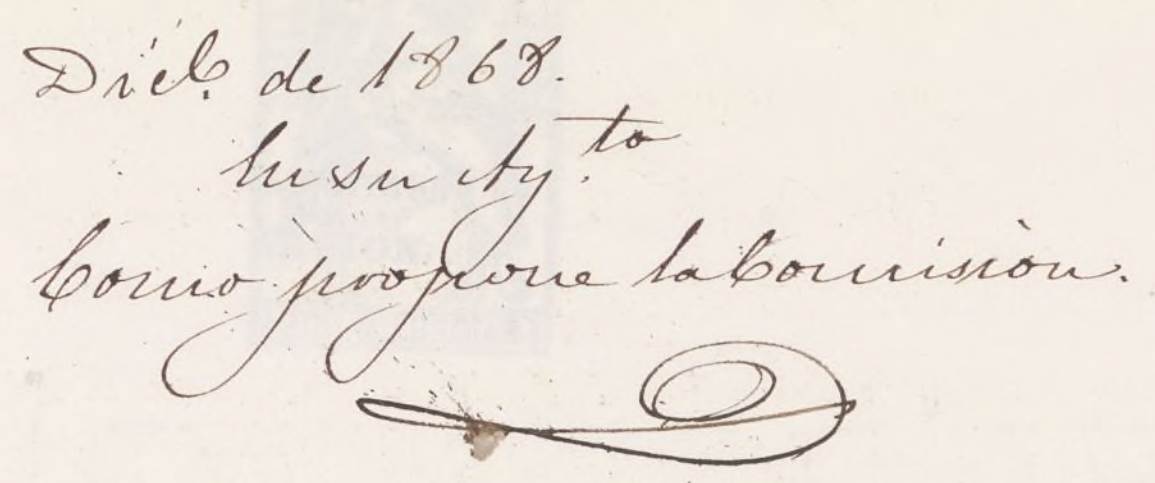 Dice. de 1868.
En su Ay.to
Como propone la Comision.